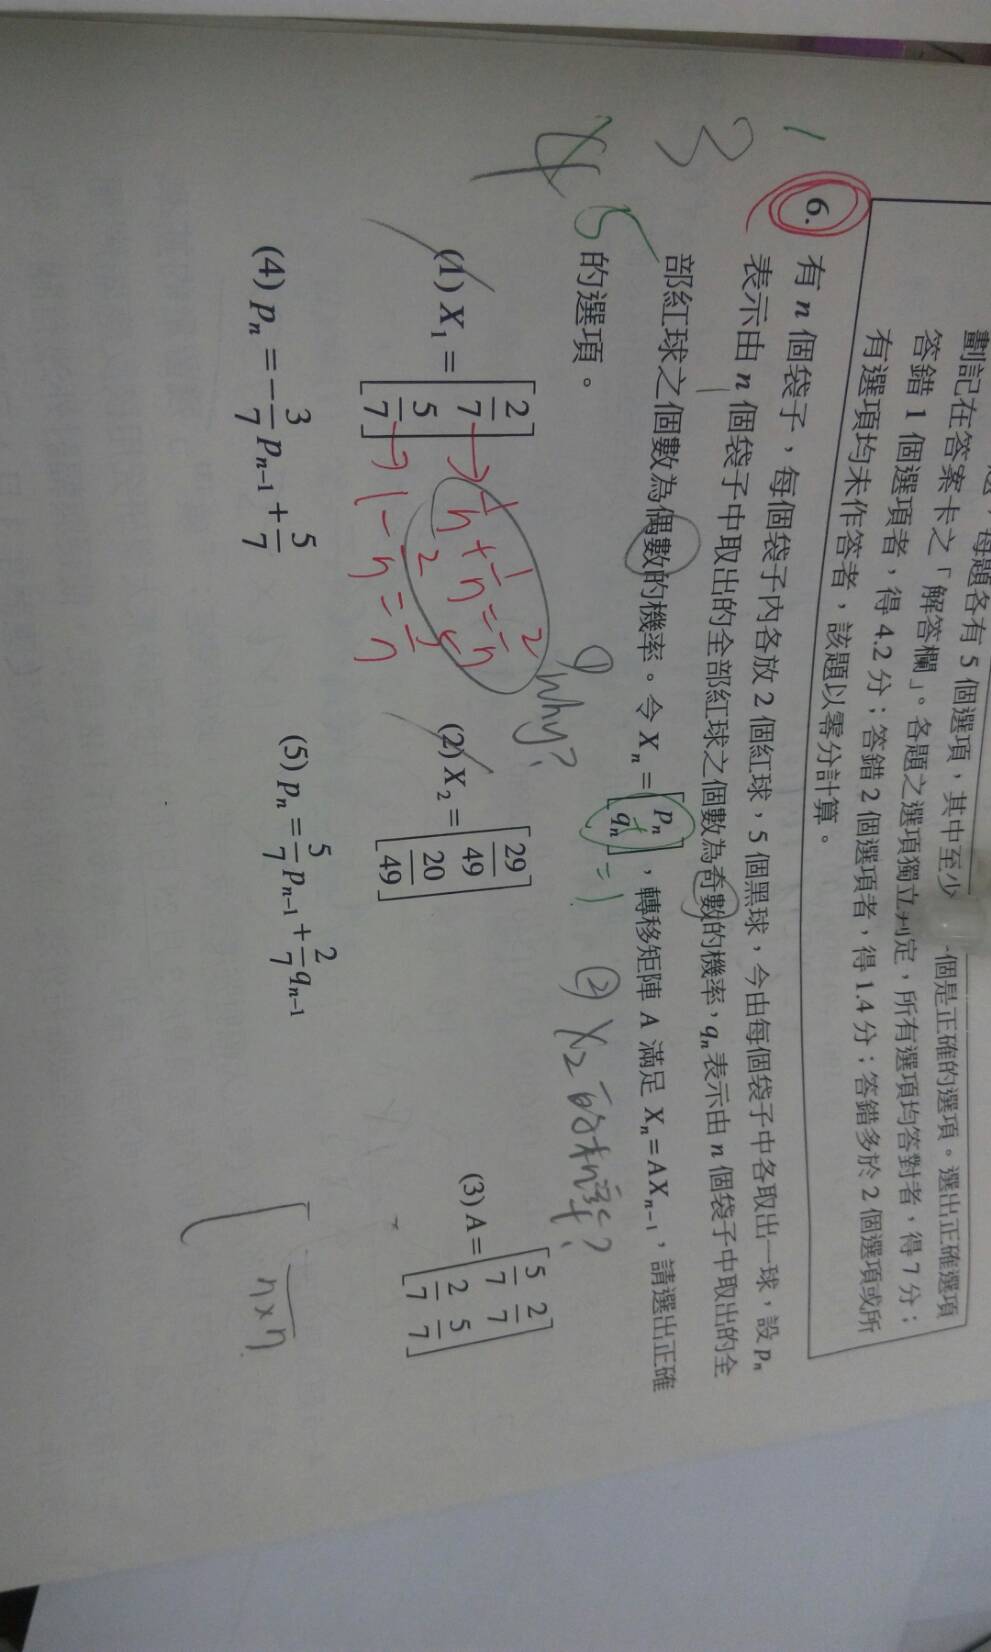 劃記在答案卡之「解答欄」。各題之選項獨立判定，所有選項均答對者，得7分；
答錯1個選項者，得4.2分；答錯2個選項者，得1.4分；答錯多於2個選項或所
有選項均未作答者，該題以零分計算。
6. 有n個袋子，每個袋子內各放2個紅球，5個黑球，今由每個袋子中各取出一球，設pₙ
表示由n個袋子中取出的全部紅球之個數為奇數的機率，qₙ表示由n個袋子中取出的全
部紅球之個數為偶數的機率。令Xₙ=[pₙ qₙ]，轉移矩陣A滿足Xₙ=AXₙ₋₁，請選出正確
的選項。
(1) X₁=[2/7 5/7]
(2) X₂=[29/49 20/49]
(3) A=[5/7 2/7 2/7 5/7]
(4) pₙ=-3/7pₙ₋₁+5/7
(5) pₙ=5/7pₙ₋₁+2/7qₙ₋₁
1
3
4
5
=1
why?
② X₂的機率?
n×n